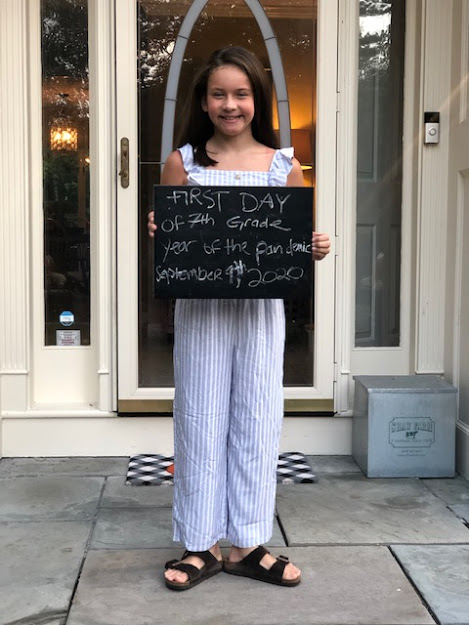 FIRST DAY
of 7th Grade
year of the pandemic
September 9th, 2020